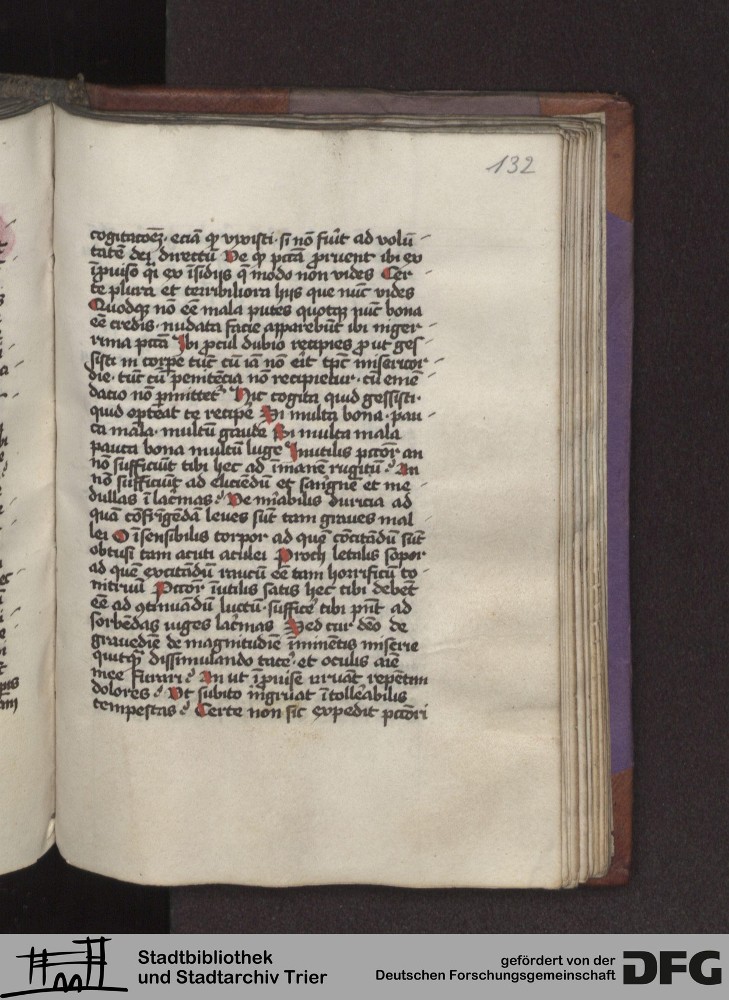 132
cogitacōēꝫ · eciā qͦ vixisti · si nō fiūt ad volū
tatē dei directū Ve qͦ pctā ꝓruent ibi ex
īpuiso q̄i ex īsidijs q̄ modo non vides Cer
te plura et terribiliora hijs que nūc vides
Quodqꝫ nō eē mala putes quotqꝫ nūc bona
eē credis · nudata facie apparebūt ibi niger
rima pctā Ibi ꝓcul dubio recipies ꝓ ut ges
sisti in corpe tūc cū iā nō erit tp̄c misericor
die · tūc cū penitēcia nō recipietur · cū eme
datio nō ꝓmittet᷑ Hic cogita quid gessisti ·
quid opteat te recipe Si multa bona · pau
ca mala · multū gaude Si multa mala
pauca bona multū luge Inutilis pctōr an
nō sufficiūt tibi hec ad īmanē rugitū · An
nō sufficiūt ad eliciēdū et sangnē et me
dullas ī lacͥmas · Ve mͥabilis duricia ad
quā cōfrīgēdā leues sūt tam graues mal
lei O īsensibilis torpor ad quē cōcitādū sūt
obtusi tam acuti aculei Proch letalis sopor
ad quē excitādū raucū eē tam horrificū to
nitruū Pctōr īutilis satis hec tibi debēt
eē ad ꝯtinuādū luctū · sufficē tibi pn̄t ad
sorbēdas iuges lacͥmas Sed cur dēo de
grauediē de magnitudiē īminētis miserie
quitqꝫ dissimulando tacē · et oculis aīē
mee furari · An ut īpuise irruāt repentini
dolores · Ut subito ingruat ītollēabilis
tempestas · Certe non sic expedit pctōri
Stadtbibliothek
und Stadtarchiv Trier
gefördert von der
Deutschen Forschungsgemeinschaft
DFG